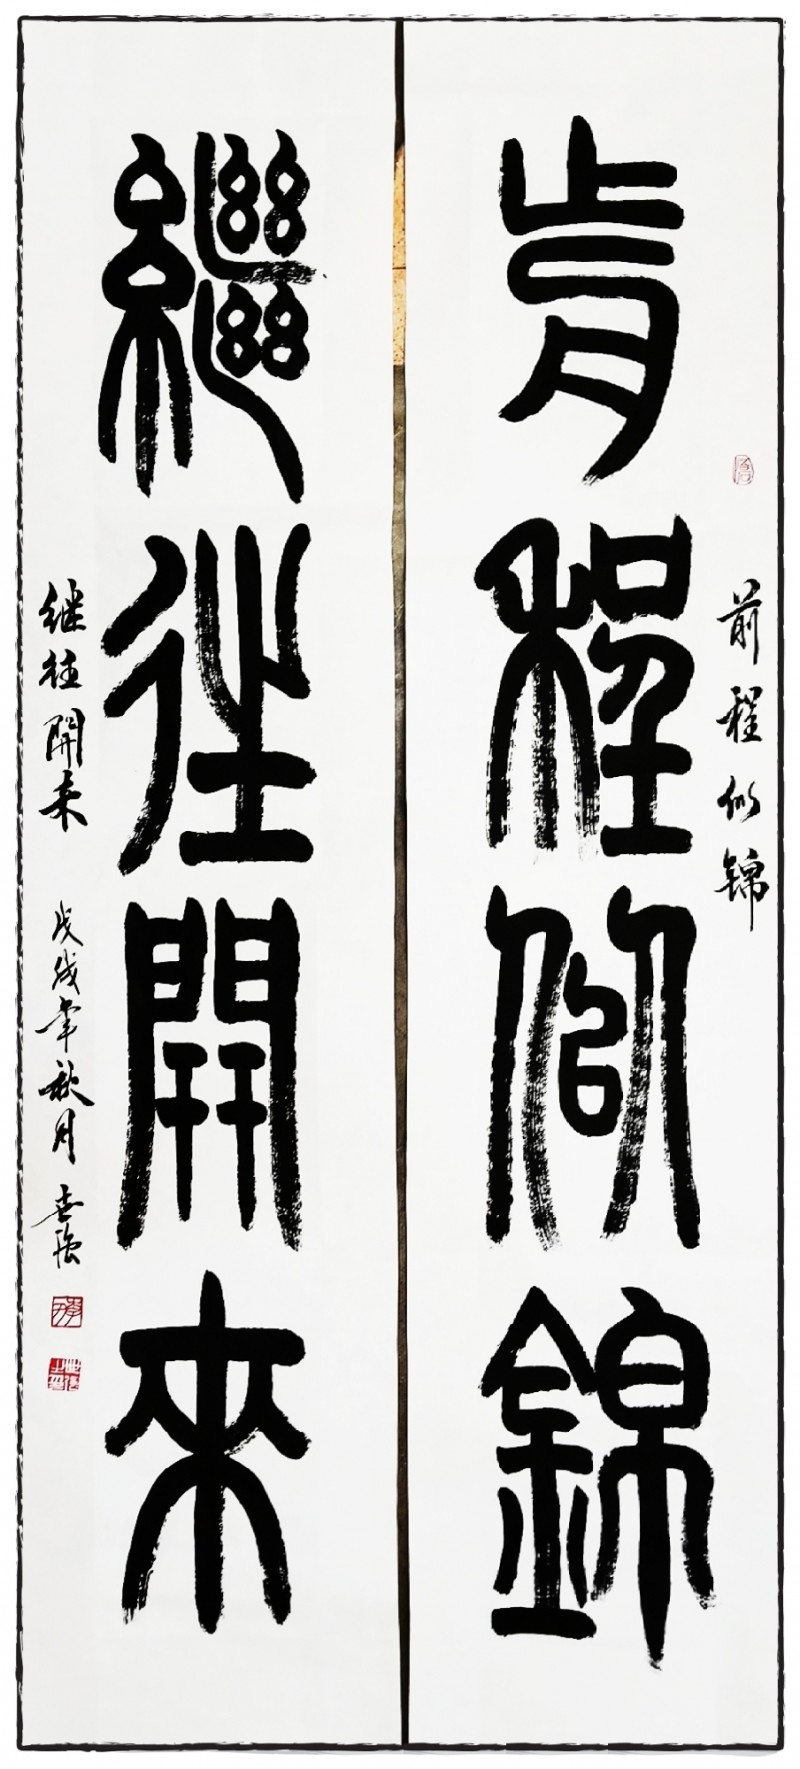 前程似锦
前程似錦
繼往開來
继往開来 戊戌年秋月 世强